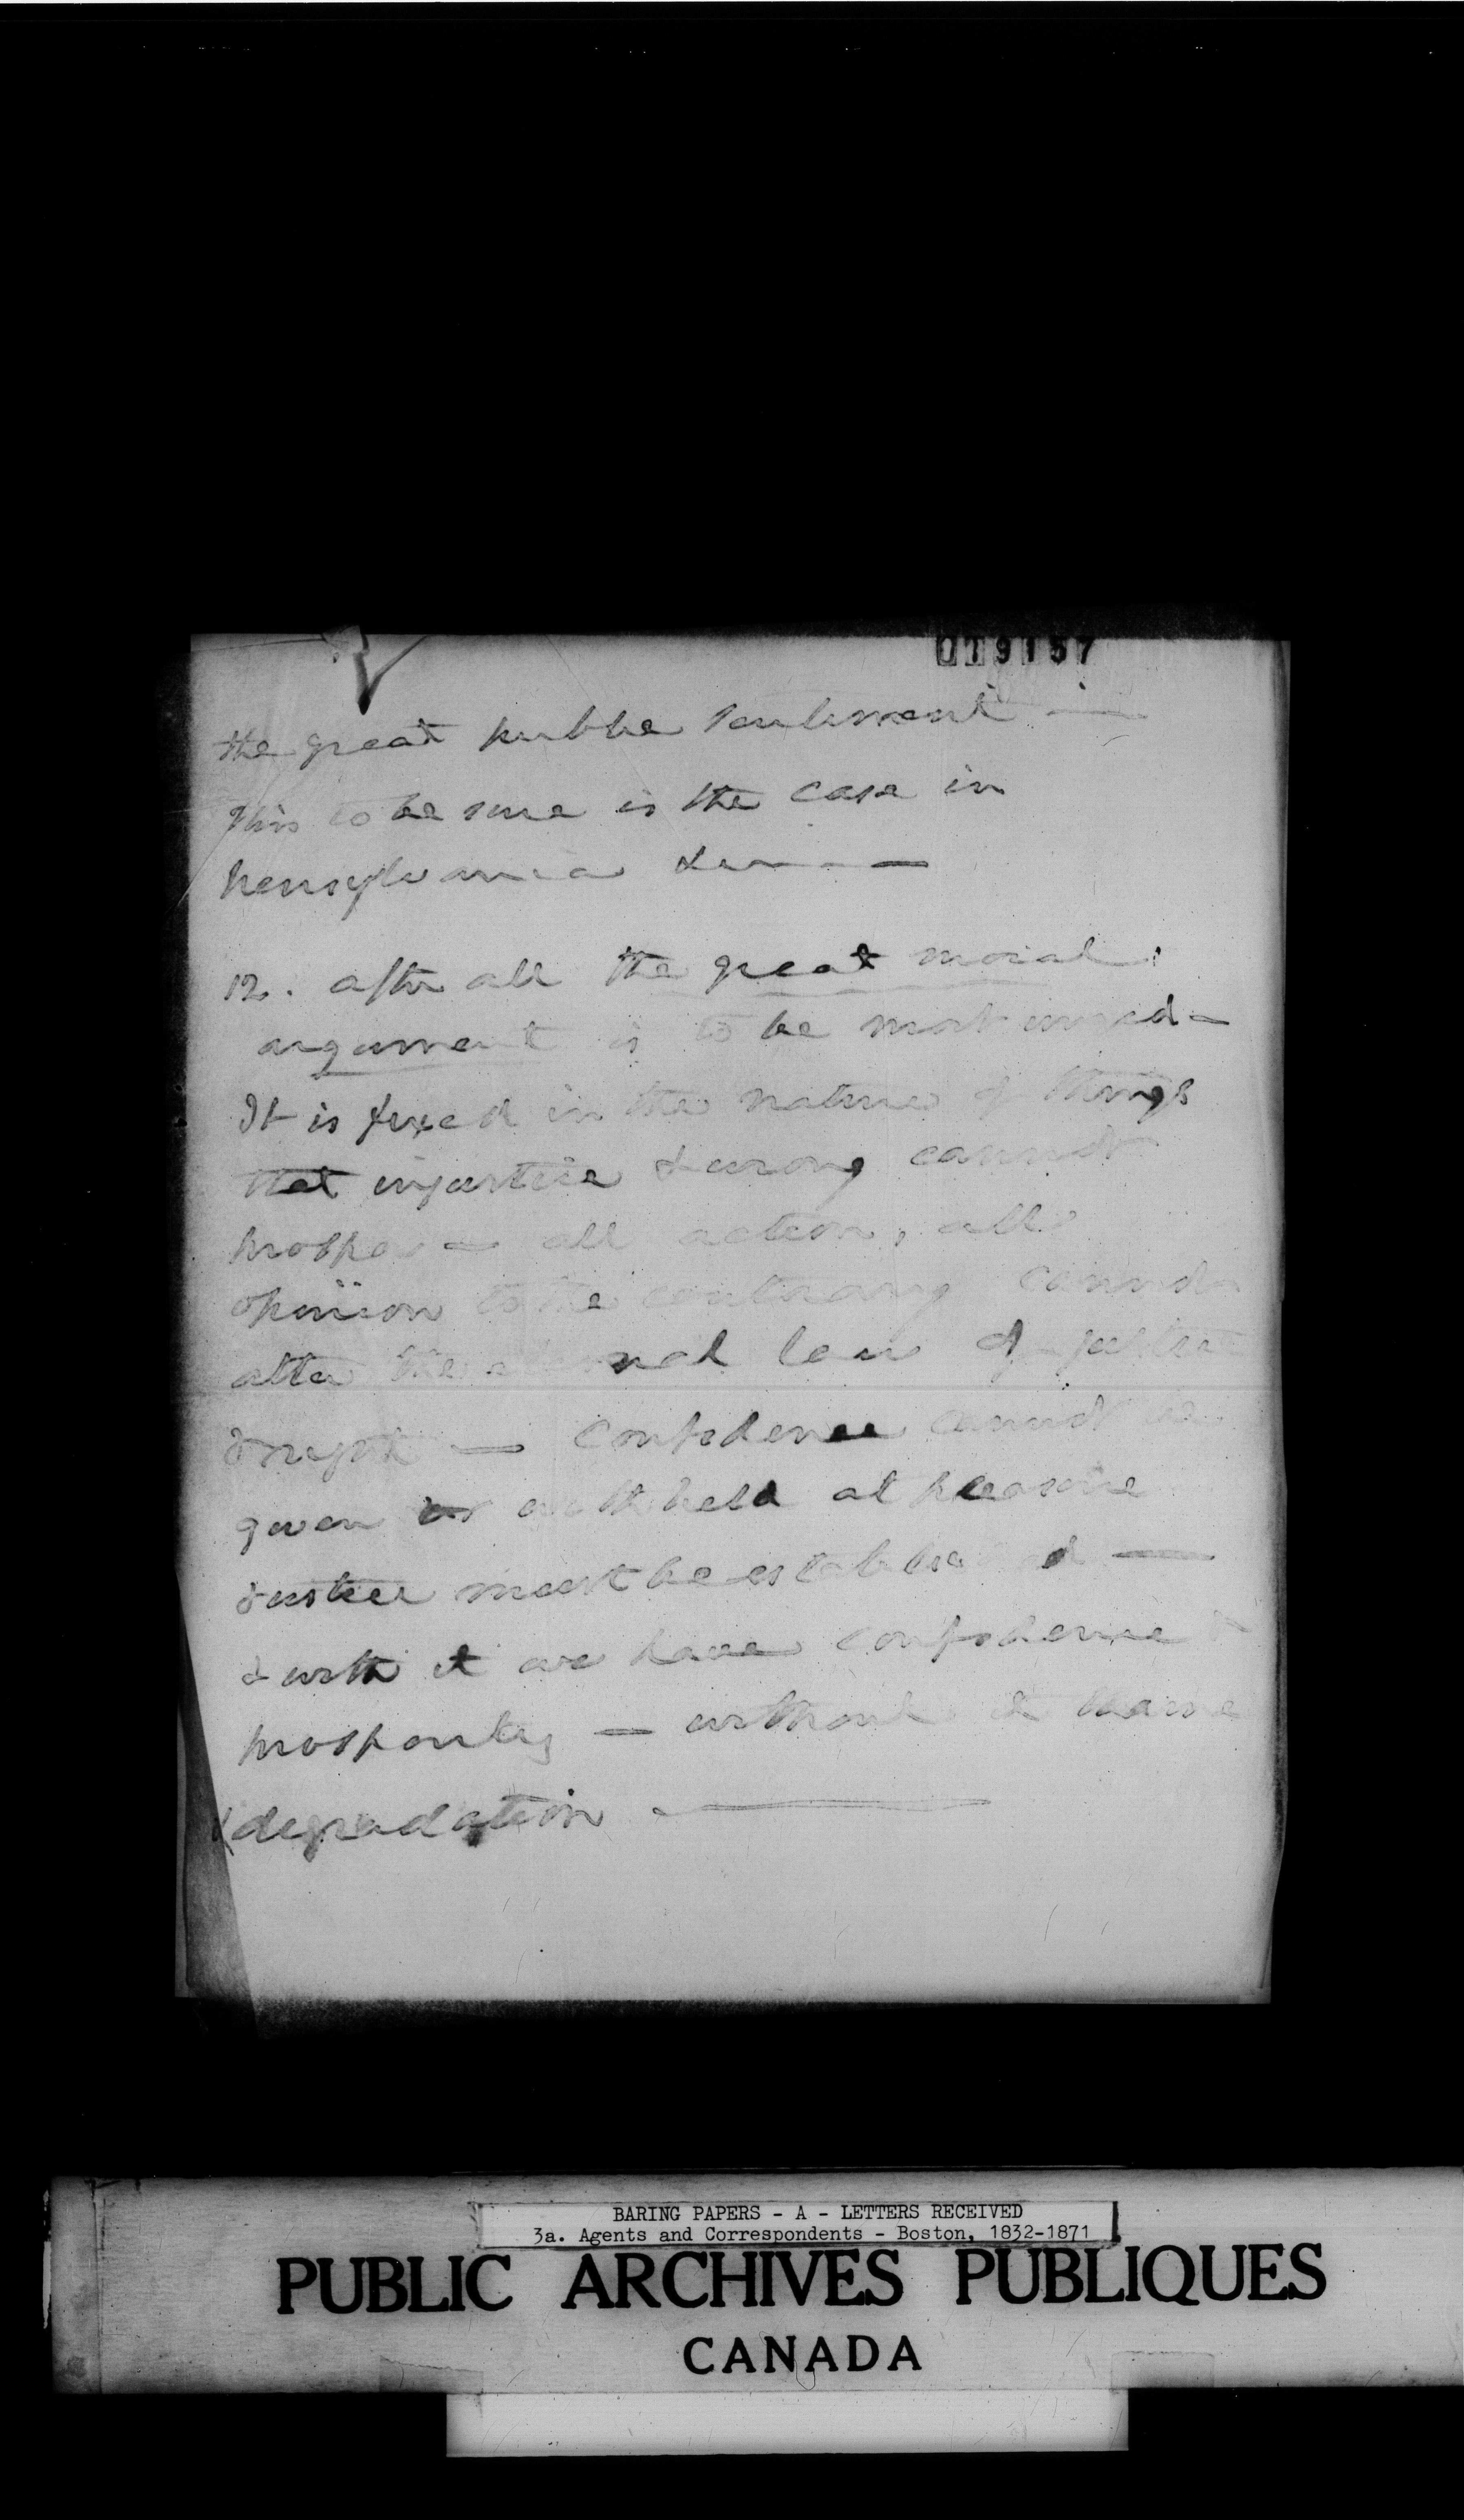 079157
the great public sentiment —
This to be sure is the case in
Pensylvania &c — — —
12. after all the great moral
argument is to be most urged —
It is fixed in the nature of things
that injustice & wrong cannot
prosper — all action, all
opinion to the contrary cannot
alter the eternal law of justice
& right — Confidence cannot be
given or withheld at pleasure
Justice must be established —
& with it we have confidence &
prosperity — without it shame
& degradation —
BARING PAPERS - A - LETTERS RECEIVED
3a. Agents and Correspondents - Boston, 1832-1871
PUBLIC ARCHIVES PUBLIQUES
CANADA